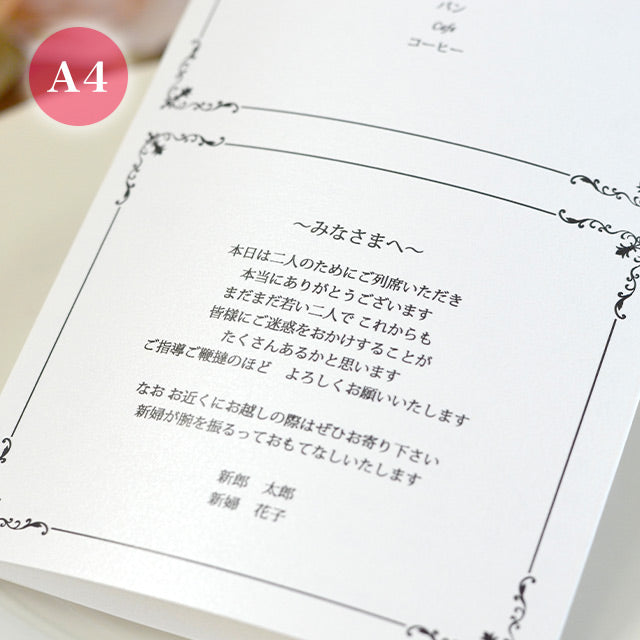 A4
パン
Cafe
コーヒー
～みなさまへ～
本日は二人のためにご列席いただき
本当にありがとうございます
まだまだ若い二人で これからも
皆様にご迷惑をおかけすることが
たくさんあるかと思います
ご指導ご鞭撻のほど　よろしくお願いいたします
なお お近くにお越しの際はぜひお寄り下さい
新婦が腕を振るっておもてなしいたします
新郎　太郎
新婦　花子